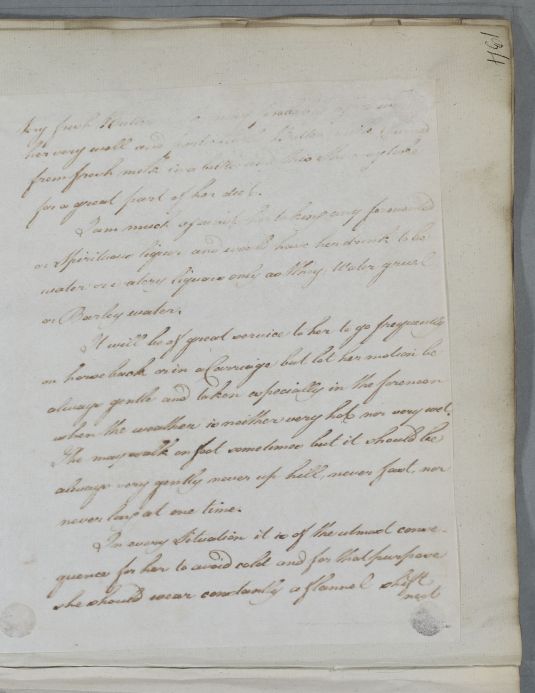 194
very fresh Butter
her very well and Butter milk
from fresh milk in a bottle and this she may take
for a great part of her diet.
I am much against her taking any fermented
or Spirituous liquor and would have her drink to be
water or watery liquors only as Whey, Water gruel
or Barley water.
It will be of great service to her to go frequently
on horse back or in a Carriage but let her motion be
always gentle and taken especially in the forenoon
when the weather is neither very hot nor very wet.
She may walk on foot sometimes but it should be
always very gently never up hill, never fast, nor
never long at one time.
In every Situation it is of the utmost conse-
quence for her to avoid cold and for that purpose
she should wear constantly a flannel shift
next